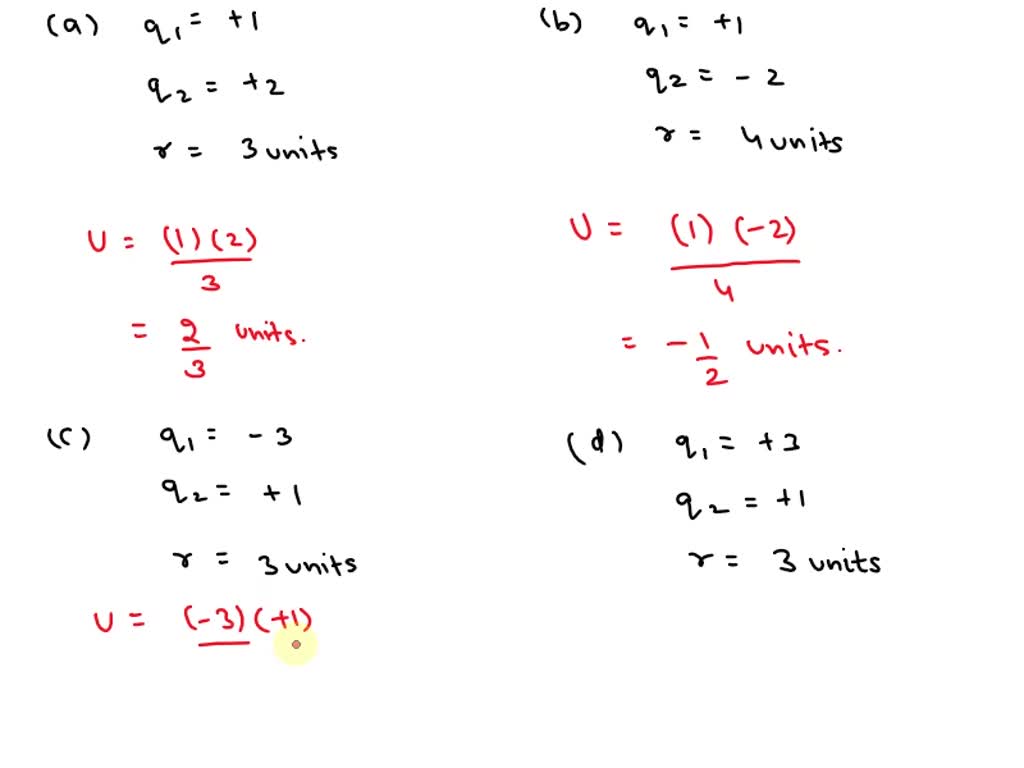 (a) q₁ = +1
q₂ = +2
r = 3 units
U = (1)(2)
3
= 2 units.
3
(b) q₁ = +1
q₂ = -2
r = 4 units
U = (1) (-2)
4
= -1 units.
2
(c) q₁ = -3
q₂ = +1
r = 3 units
U = (-3)(+1)
(d) q₁ = +3
q₂ = +1
r = 3 units